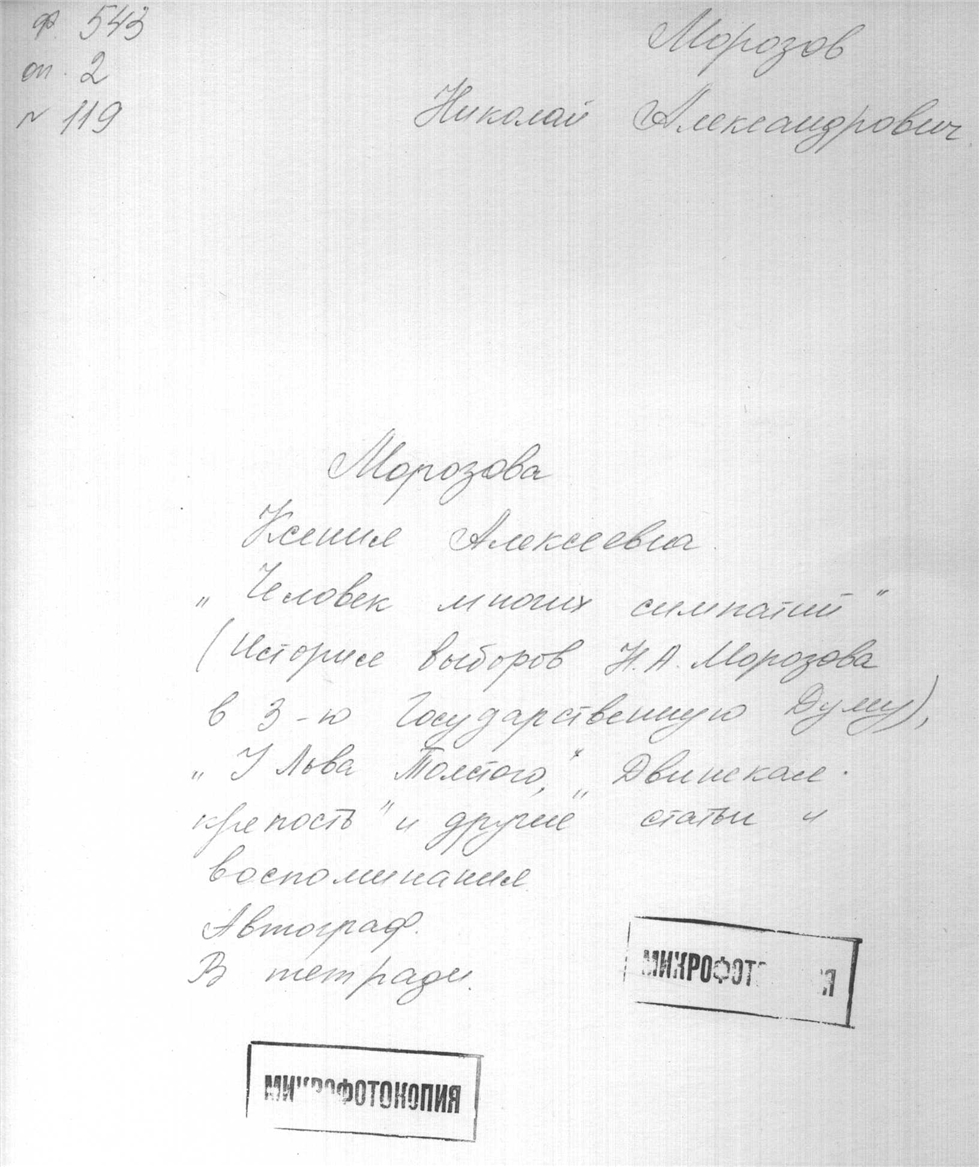 ф. 543
оп. 2
№ 119
Морозов
Николай Александрович.
Морозова
Ксения Алексеевна.
„Человек многих симпатий"
(История выборов Н.А. Морозова
в 3-ю Государственную Думу),
„У Льва Толстого," „Двинская
крепость" и другие статьи и
воспоминания
Автограф.
В тетради.
МИКРОФОТ ИЯ
МИКРОФОТОКОПИЯ